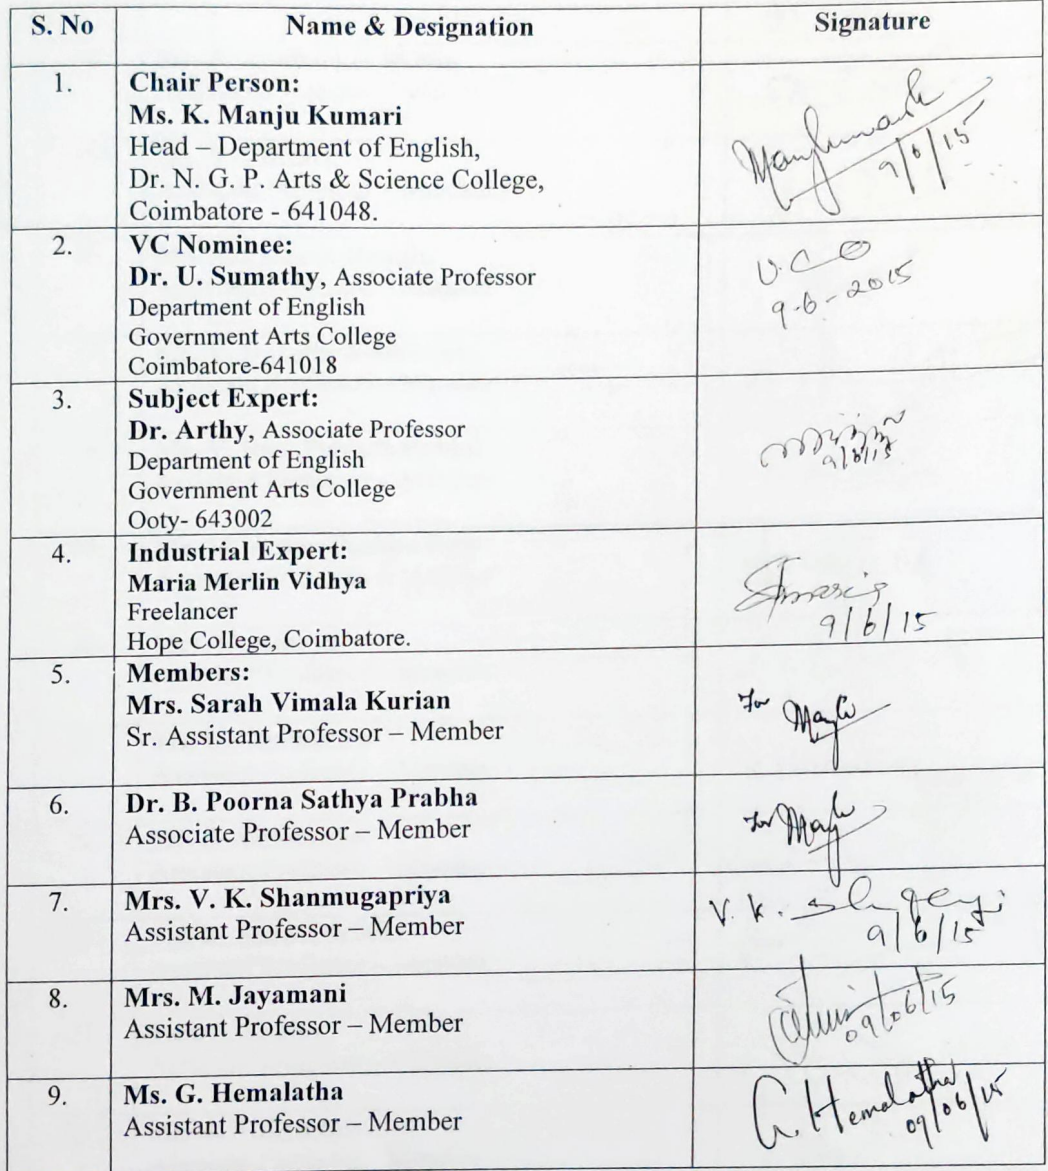 S. No Name & Designation Signature
1. Chair Person:
Ms. K. Manju Kumari
Head – Department of English,
Dr. N. G. P. Arts & Science College,
Coimbatore - 641048.
9/6/15
2. VC Nominee:
Dr. U. Sumathy, Associate Professor
Department of English
Government Arts College
Coimbatore-641018
9-6-2015
3. Subject Expert:
Dr. Arthy, Associate Professor
Department of English
Government Arts College
Ooty- 643002
9/6/15
4. Industrial Expert:
Maria Merlin Vidhya
Freelancer
Hope College, Coimbatore.
9/6/15
5. Members:
Mrs. Sarah Vimala Kurian
Sr. Assistant Professor – Member
For
6. Dr. B. Poorna Sathya Prabha
Associate Professor – Member
For
7. Mrs. V. K. Shanmugapriya
Assistant Professor – Member
V. K.
9/6/15
8. Mrs. M. Jayamani
Assistant Professor – Member
09/06/15
9. Ms. G. Hemalatha
Assistant Professor – Member
G. Hemalatha
09/06/15